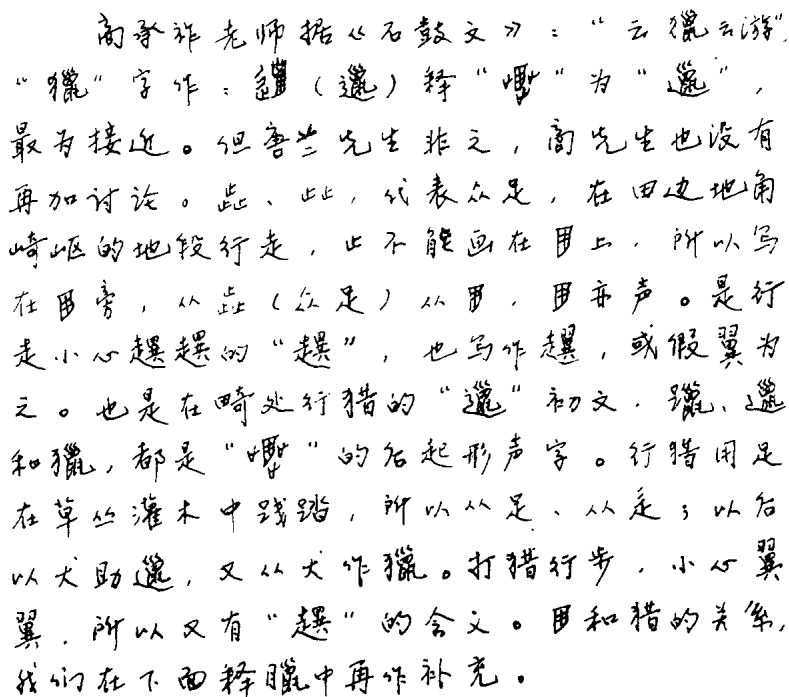 商承祚老师据《石鼓文》：“云獵云游”，
“獵”字作：（邋）释“”为“邋”，
最为接近。但唐兰先生非之，商先生也没有
再加讨论。歮、，代表众足，在田边地角
崎岖的地段行走，止不能画在上，所以写
在旁，从（众足）从，亦声。是行
走小心趩趩的“趩”，也写作，或假翼为
之。也是在畸处行猎的“邋”初文．躐、邋
和獵，都是“”的后起形声字。行猎用足
在草丛灌木中践踏，所以从足、从辵；以后
以犬助邋，又从犬作獵。打猎行步，小心翼
翼．所以又有“趩”的含义。和猎的关系，
我们在下面释臘中再作补充。